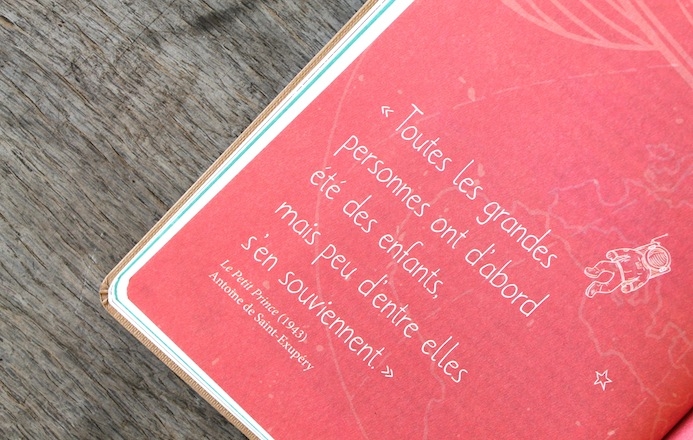 « Toutes les grandes
personnes ont d'abord
été des enfants,
mais peu d'entre elles
s'en souviennent. »
Le Petit Prince (1943)
Antoine de Saint-Exupéry